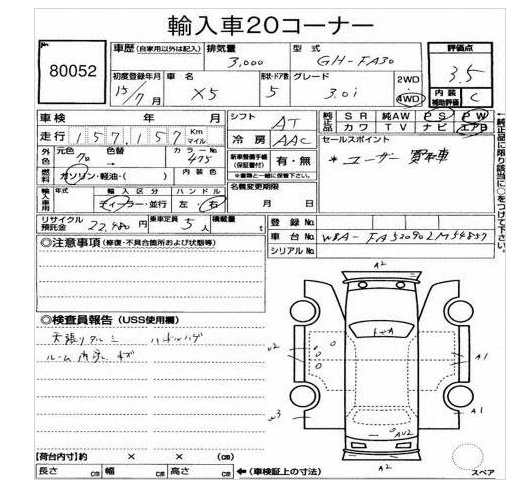 輸入車20コーナー
80052
車歴 (自家用以外は記入) 排気量 3,000 型式 GH-FA30 評価点 3.5
初度登録年月 15/7月 車名 X5 形状・ドア数 5 グレード 3.0i 2WD 4WD 内装補助評価 C
車検 年 月 シフト AT 純正品 SR 純AW PS PW
走行 157,157 Km マイル 冷房 AAC カワ TV ナビ エアB
外色 元色 色替 カラーNo 475 新車整備手帳(保証書付) 有・無 セールスポイント
燃料 ガソリン・軽油・( ) 内装色 ※書類と一緒に保管下さい。 *ユーザー買取車
輸入車用 年式 輸入区分 ハンドル 名義変更期限
ディーラー・並行 左・右 月 日
リサイクル預託金 22,480円 乗車定員 5人 積載量 t 登録No.
車台No. WBA-FA52090LM54857
シリアルNo.
◎注意事項 (修復・不具合箇所および状態等)
◎検査員報告 (USS使用欄)
ルーム内 キズ
A2
A
A1
A1
A2
【荷台内寸】約 × × (cm)
長さ cm 幅 cm 高さ cm ←(車検証上の寸法)
スペア
純正品に限り該当に○をつけて下さい。